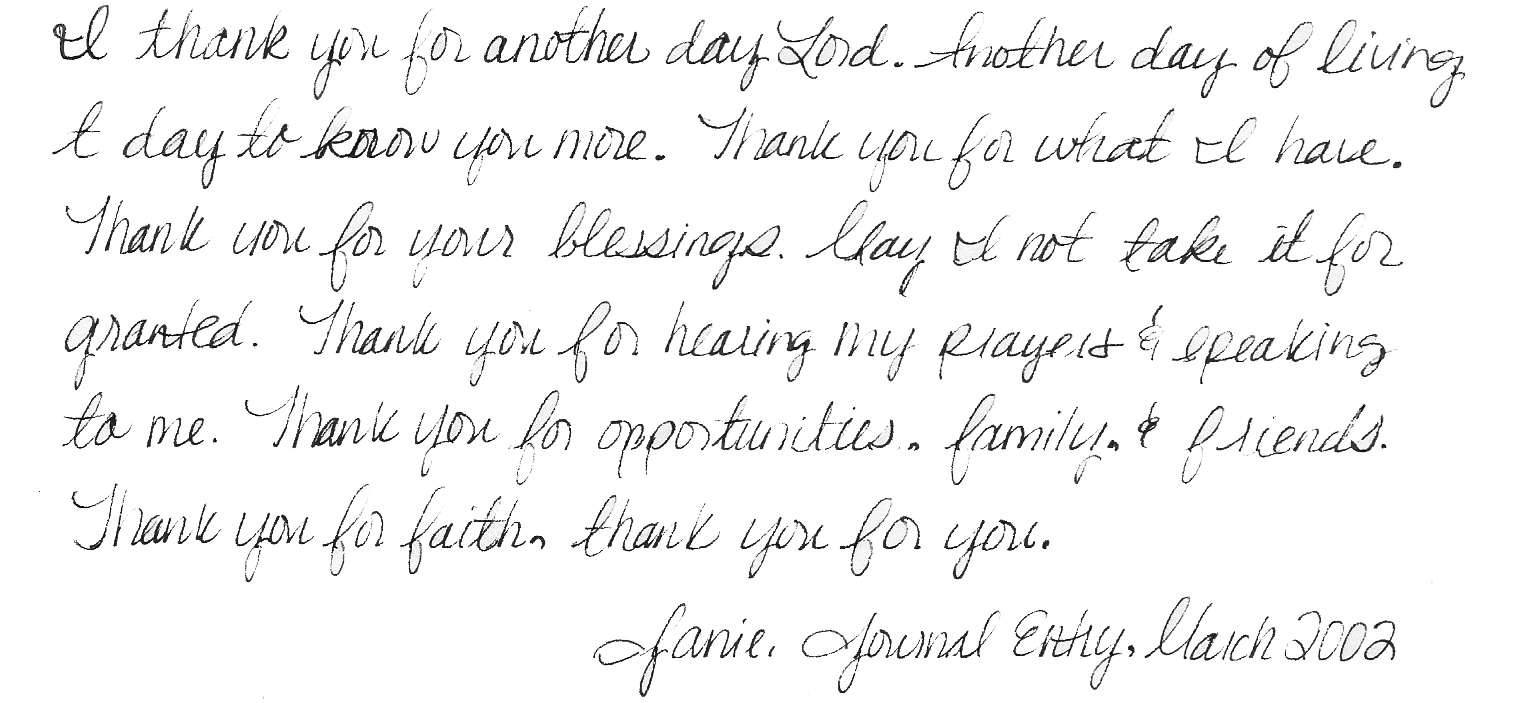 I thank you for another day Lord. Another day of living
t day to know you more. Thank you for what I have.
Thank you for your blessings. May I not take it for
granted. Thank you for hearing my prayers & speaking
to me. Thank you for opportunities, family, & friends.
Thank you for faith, thank you for you.
Janie, Journal Entry, March 2002